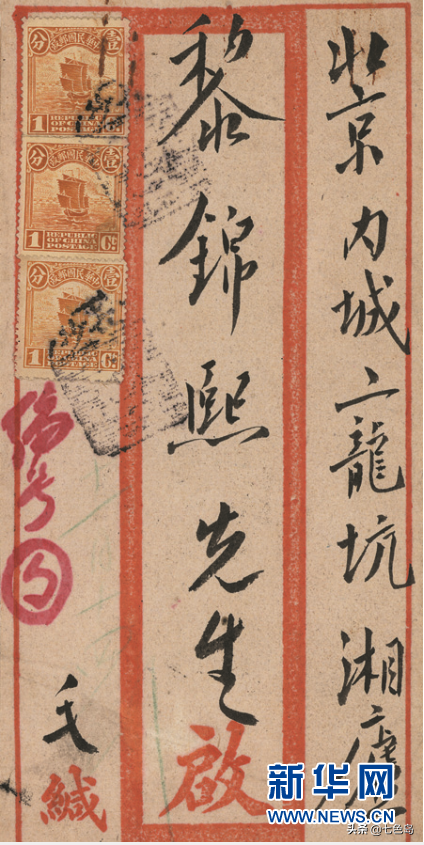 北京内城二龍坑湘
黎錦熙先生啟
分 壹
1 REPUBLIC OF CHINA POSTAGE
分 中華民國郵政 壹
1 REPUBLIC OF CHINA POSTAGE Cs
分 中華民國郵政 壹
1 REPUBLIC OF CHINA POSTAGE Cs
编号
毛緘
新华网
NEWS.CN
头条 @七色岛